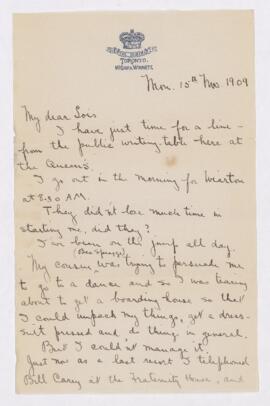 TORONTO.
Mon. 15th Nov 1909
My dear Lois
I have just time for a line
from the public writing table here at
the Queen's.
I go out in the morning for Wiarton
at 8.30 A.M.
They didn't lose much time in
starting me, did they?
I've been on the jump all day.
My cousin was trying to persuade me
to go to a dance and so I was tearing
about to get a boarding house so that
I could unpack my things, get a dress-
suit pressed and do things in general.
But I couldn't manage it.
Just now as a last resort I telephoned
Bill Carey at the Fraternity House, and